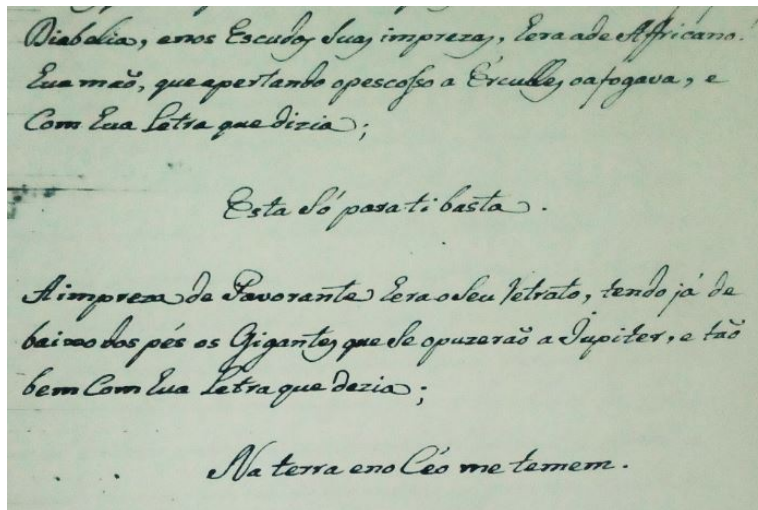 Diabolia, enos Escudos suas imprezas, hera ade Africano.
hua mão, que apertando opescosso a Ercules oafogava, e
Com hua Letra que dizia;
Esta só para ti basta.
A impreza de Pavorante hera o seu retrato, tendo já de
baixo dos pés os Gigantes que se opuzerão a Jupiter, e tão
bem Com hua Letra que dezia;
Na terra eno Céo me temem.